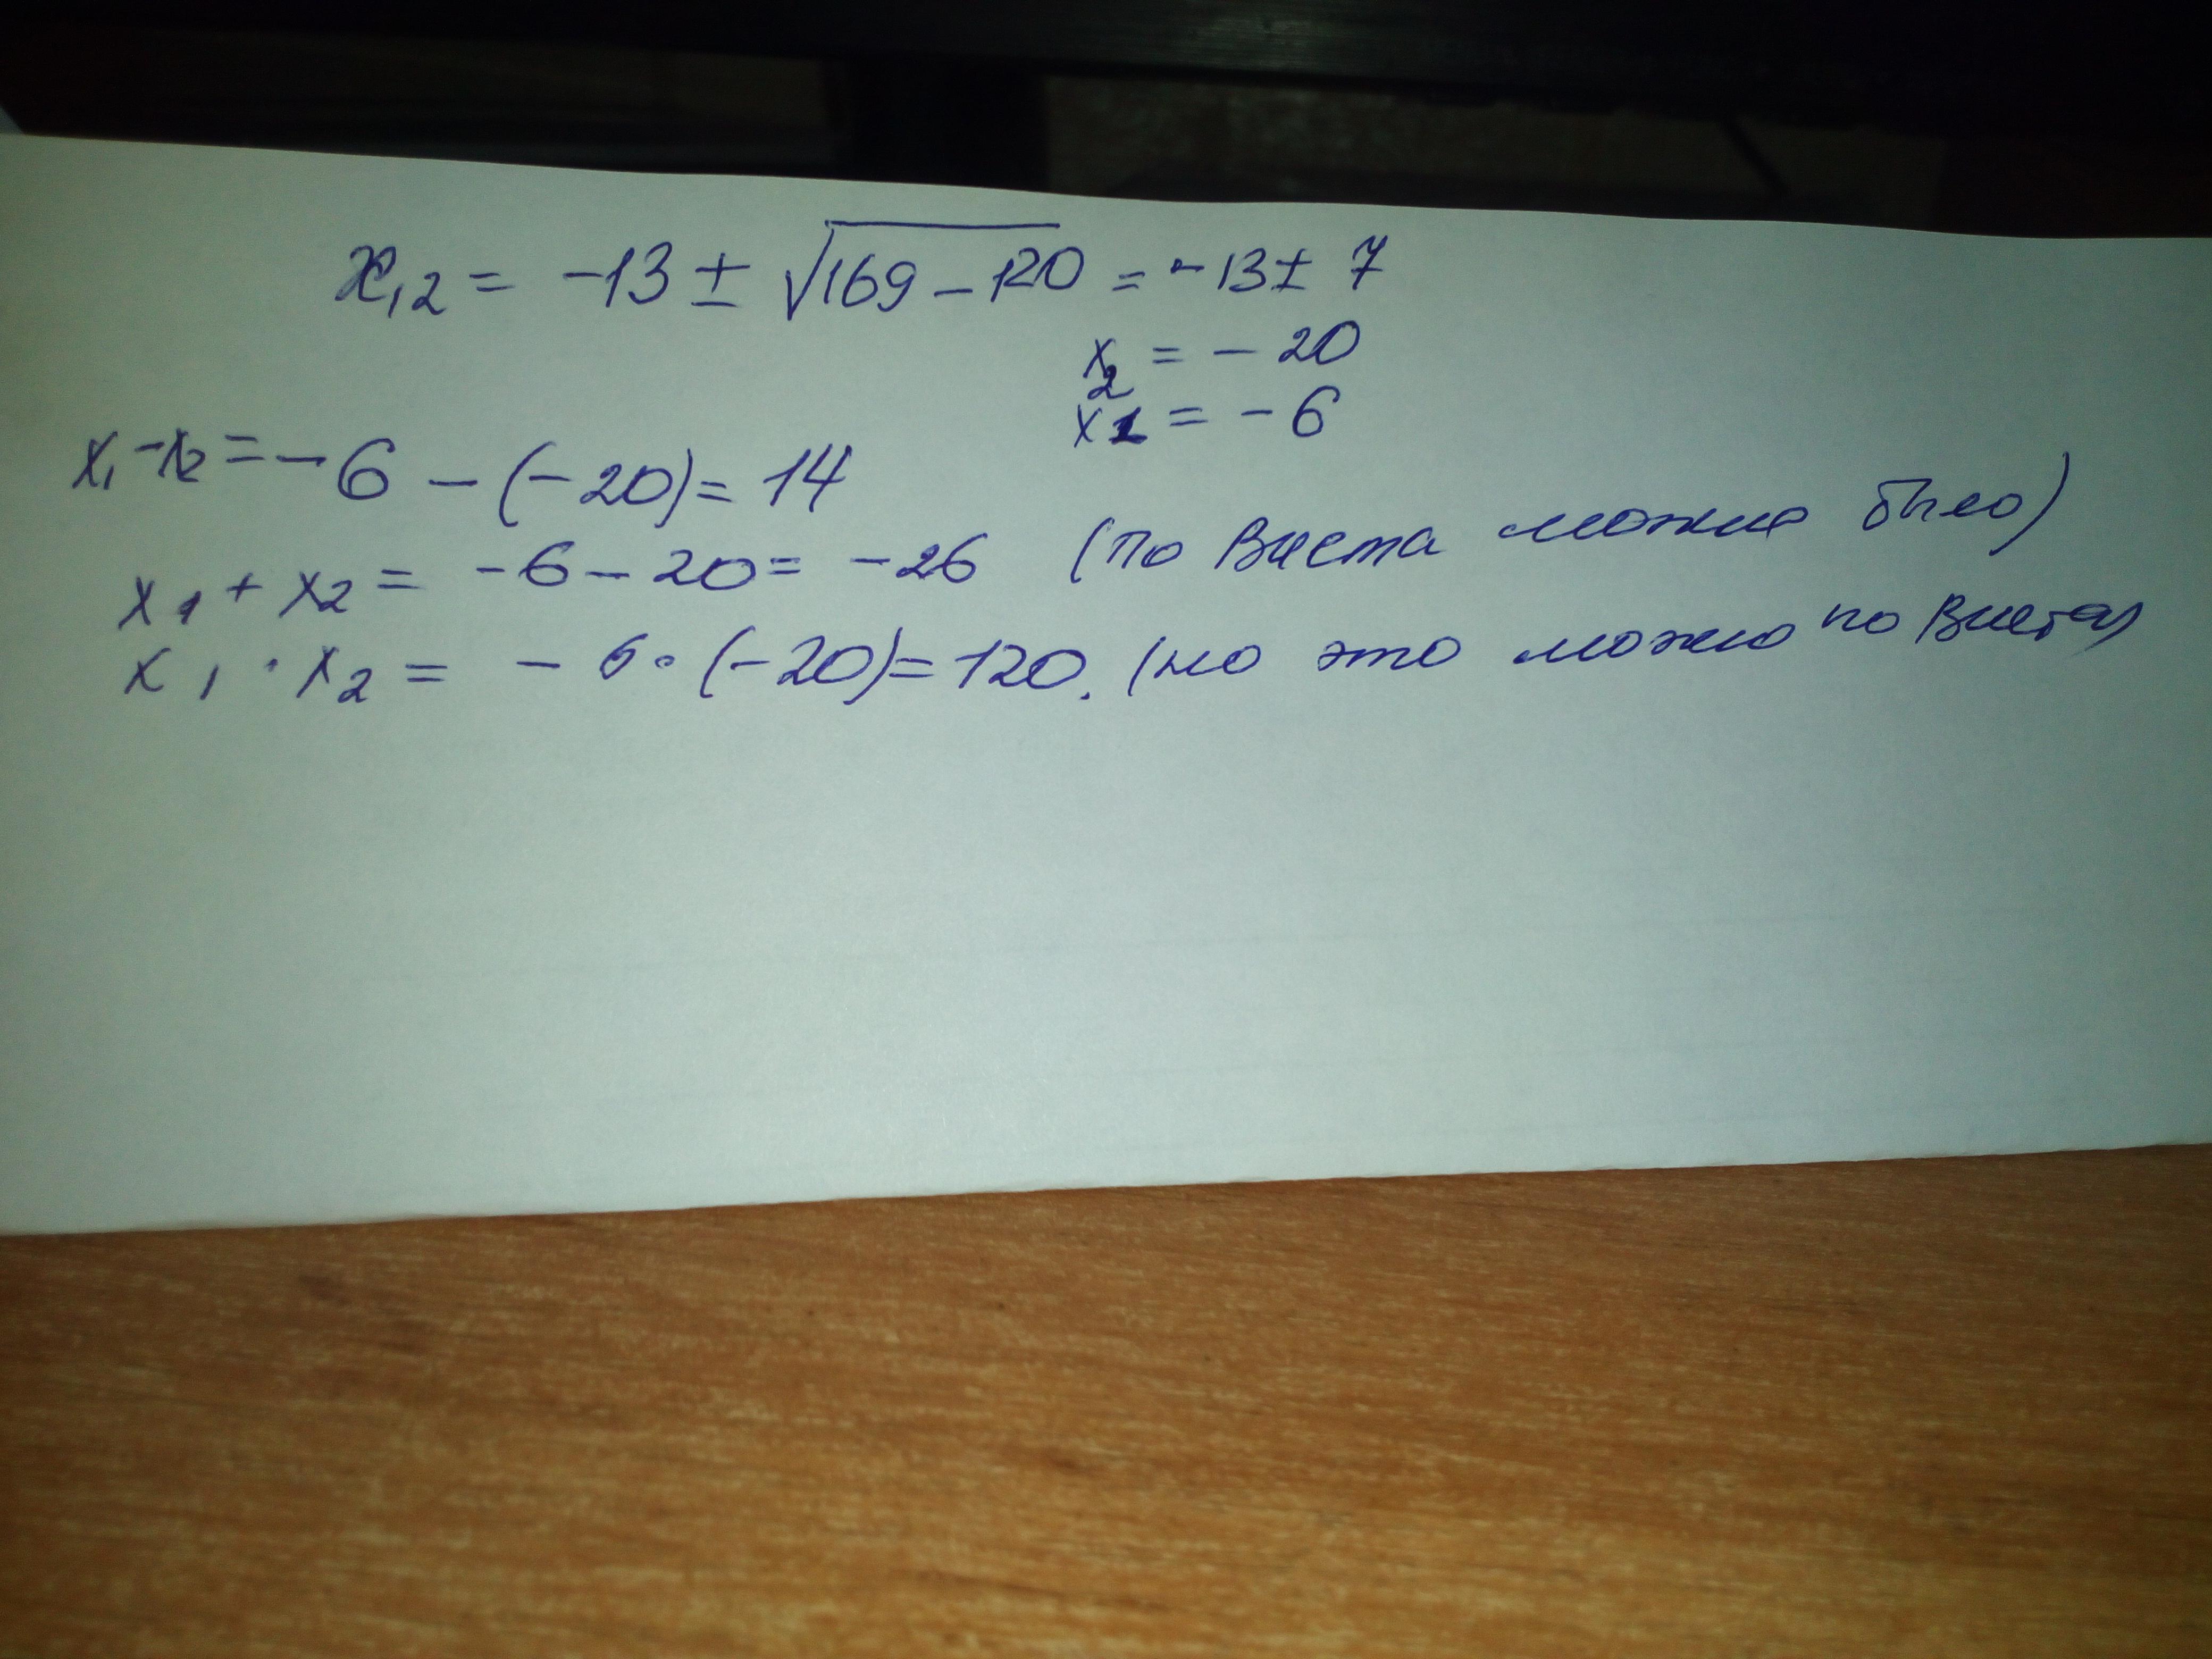 x₁,₂ = -13 ± √169 - 120 = -13 ± 7
x₂ = - 20
x₁ = - 6
x₁ - x₂ = - 6 - (-20) = 14
x₁ + x₂ = -6 - 20 = -26 (по Виета можно было)
x₁ · x₂ = - 6 · (-20) = 120. (но это можно по Виета)